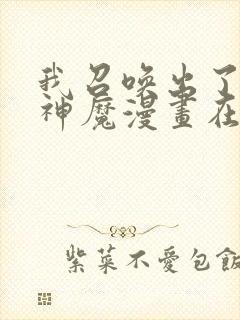 我召喚出了
神魔漫畫在
紫菜不愛包飯